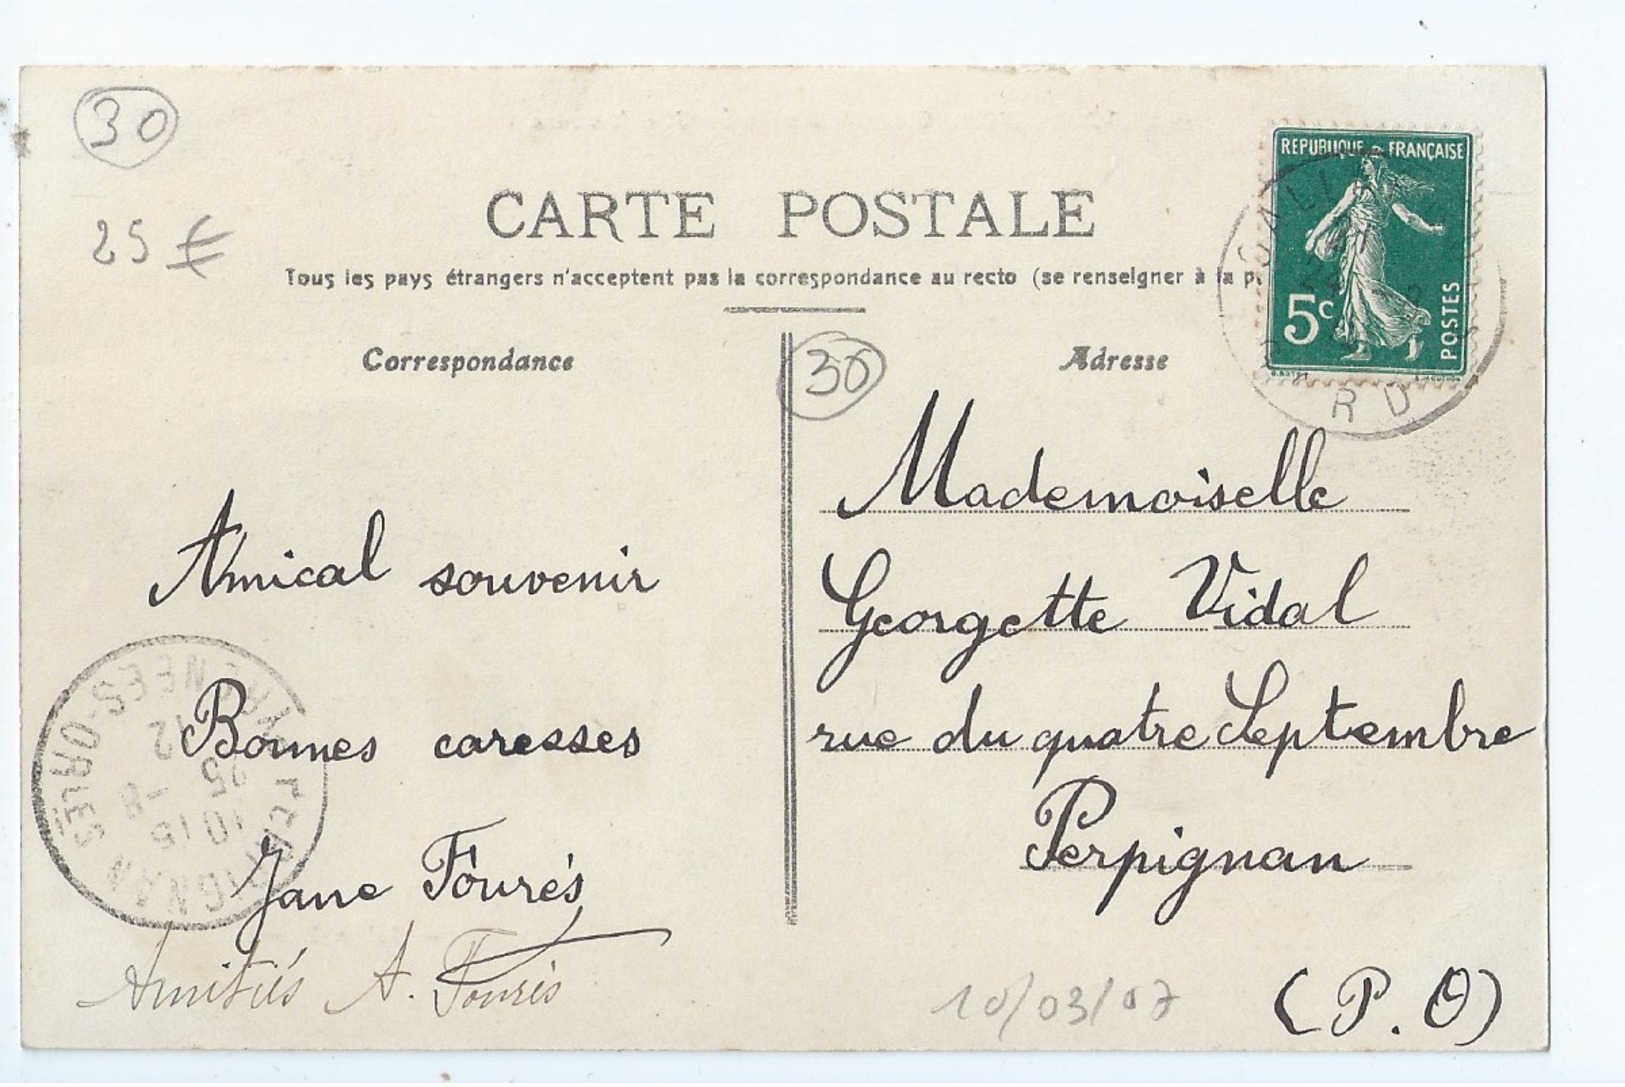 30
25 €
CARTE POSTALE
Tous les pays étrangers n'acceptent pas la correspondance au recto (se renseigner à la p
Correspondance
30
Adresse
REPUBLIQUE FRANÇAISE
5c
POSTES
RD
Amical souvenir
Bonnes caresses
Jane Fourés
Amitiés A. Fourés
Mademoiselle
Georgette Vidal
rue du quatre Septembre
Perpignan
(P. O)
10/03/07
PERPIGNAN
PYRÉNÉES-ORLES
10 15
25 -8
12